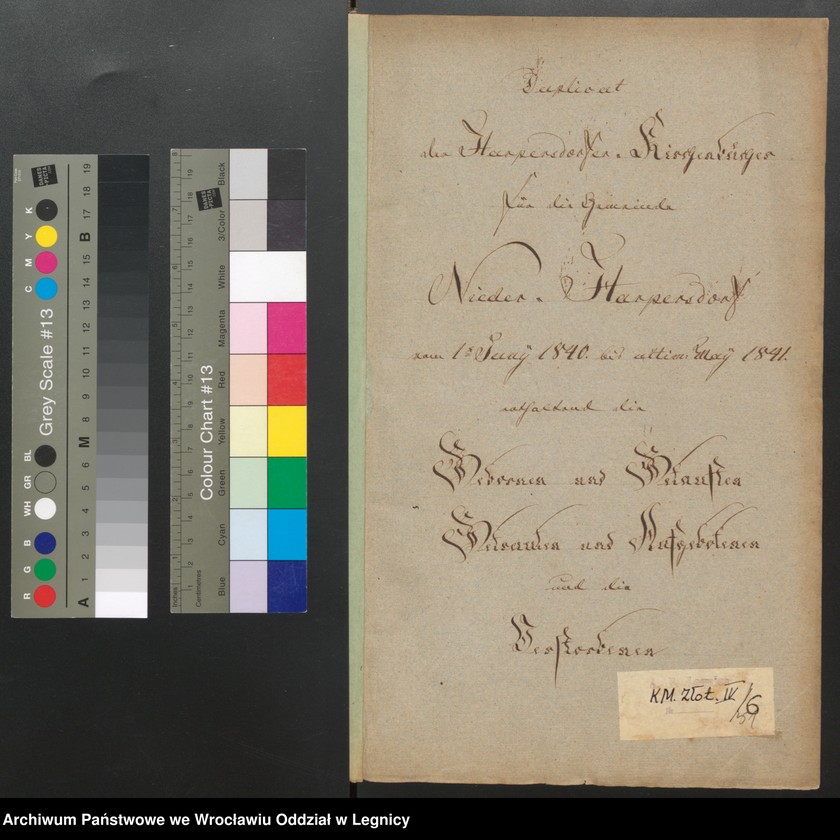 Duplicat
der Harpersdorfer Kirchenbücher
für die Gemeinde
Nieder-Harpersdorf
vom 1. Juny 1840. bis ultim. May 1841.
enthaltend die
Gebornen und Getauften
Getrauten und Aufgebotenen
und die
Verstorbenen
KM. Złot. IV/6
Grey Scale #13
A 1 2 3 4 5 6 M 8 9 10 11 12 13 14 15 B 17 18 19
R G B WH GR BL C M Y K
DANES PICTA
Colour Chart #13
Blue Cyan Green Yellow Red Magenta White 3/Color Black
Inches
Centimetres
DANES PICTA
Archiwum Państwowe we Wrocławiu Oddział w Legnicy